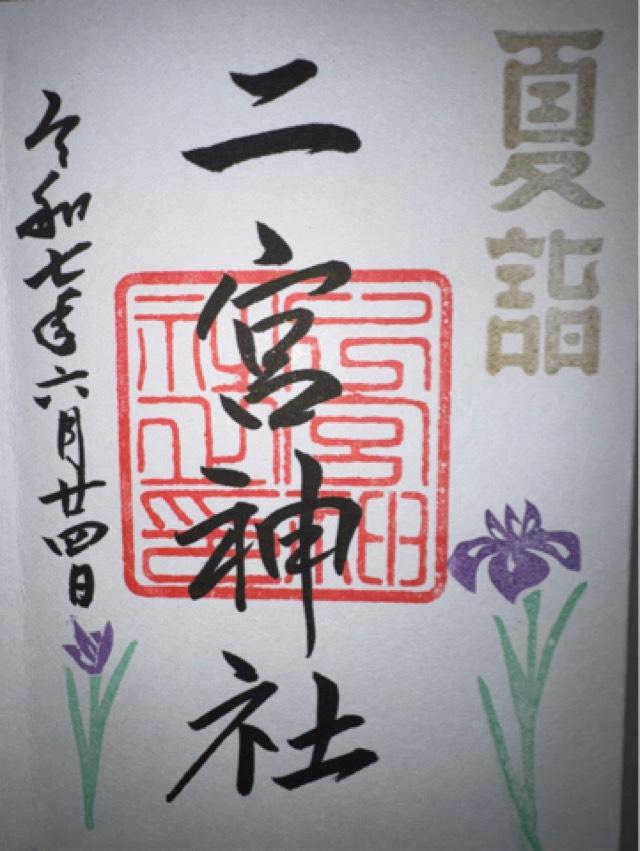 夏詣
二宮神社
令和七年六月廿四日